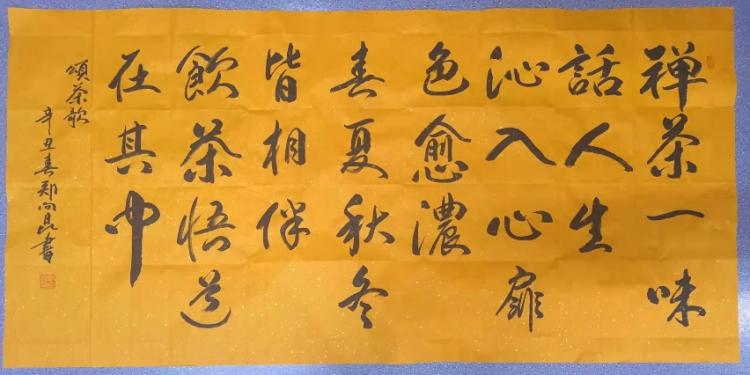 禅茶一味
話人生
沁入心扉
色愈濃
春夏秋冬
皆相伴
飲茶悟道
在其中
頌茶歌
辛丑春郑向昆書